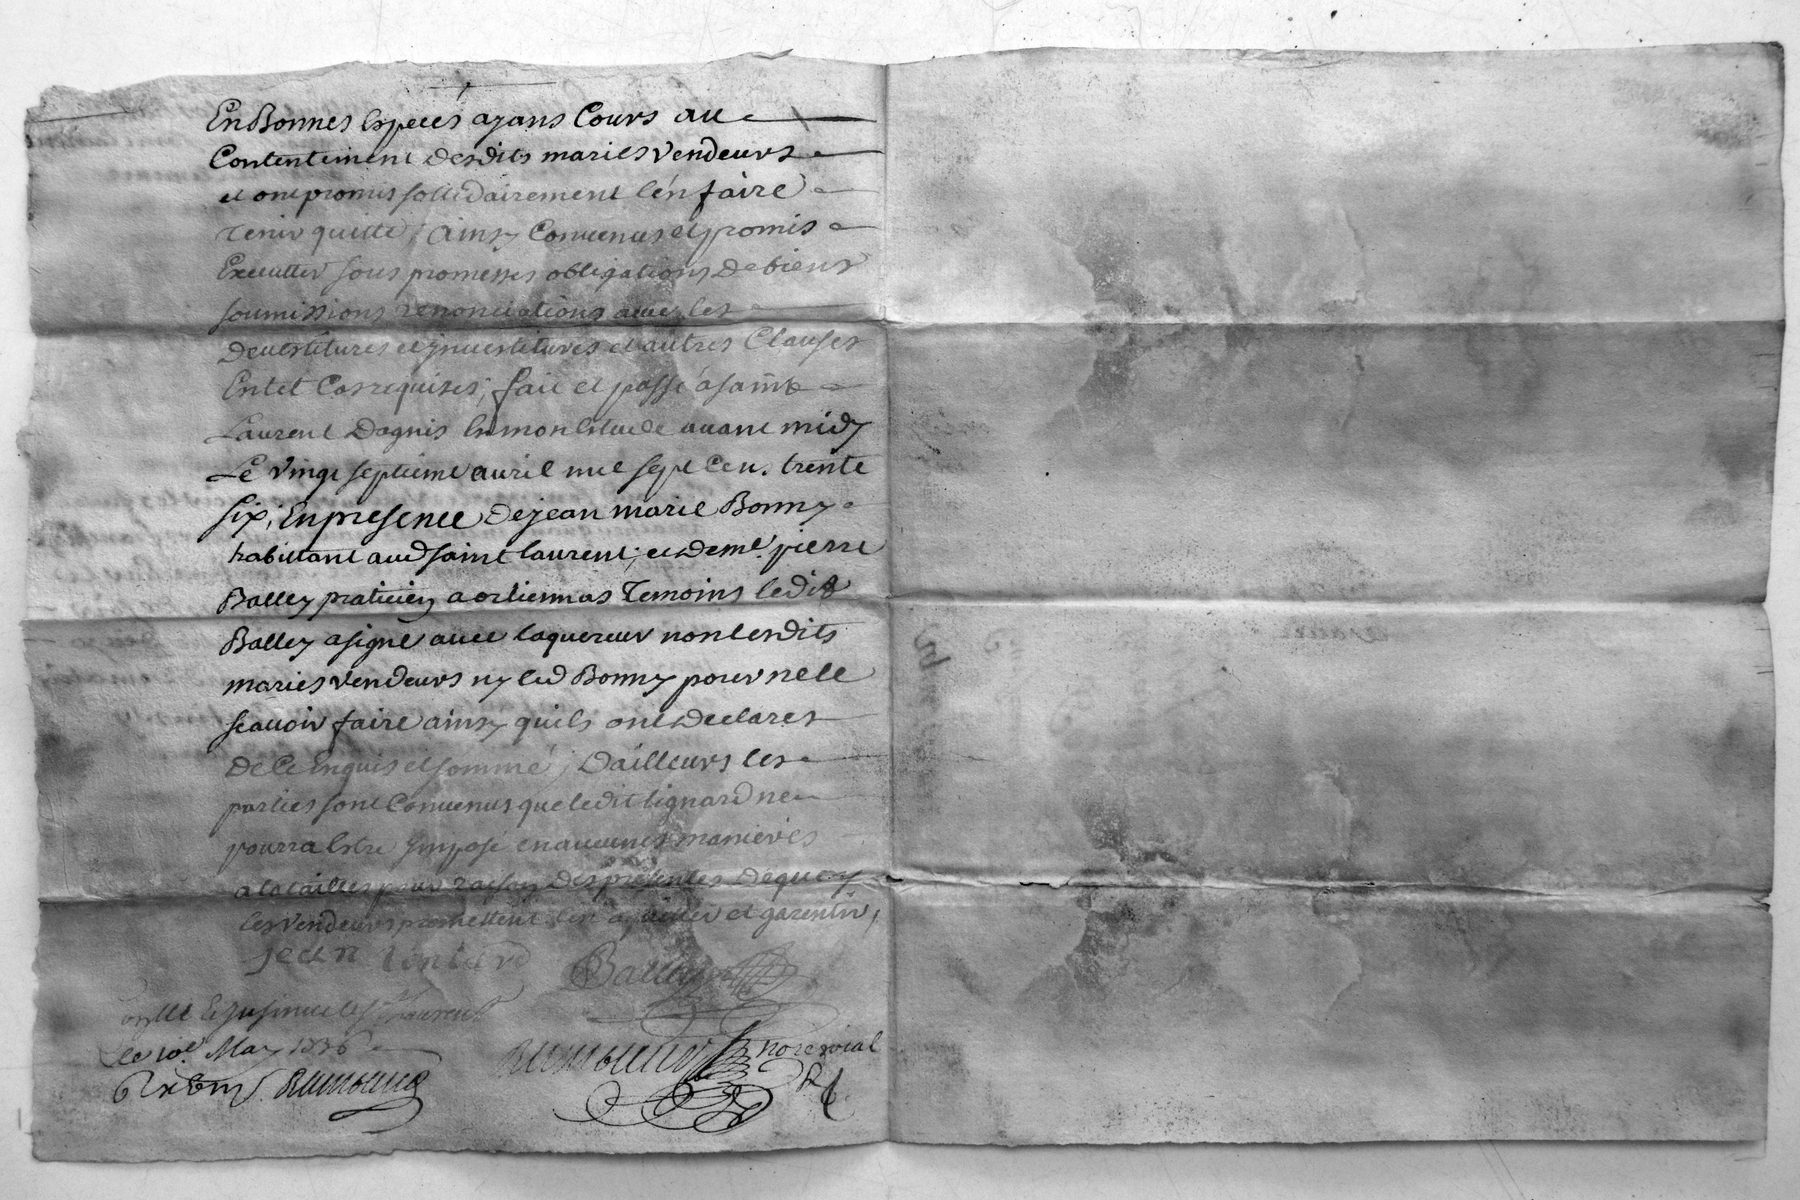 En Bonnes Especes ayans Cours au
Contentement desdits maries vendeurs
et ont promis sollidairement l'en faire
Tenir quitte; Ainsy Convenus et promis
Executter sous promesses obligations de biens
soumissions renonciations avec les
Devestitures et ynvestitures et autres Clauses
En tel Cas requises; fait et passé a saint
Laurent Dagnis En mon Etude avant midy
Le Vingt septieme avril mil sept Cens trente
six; En presence de jean marie Bonny
habittant aud saint laurent; et de me. pierre
Balley praticien a ortiennas Temoins ledit
Balley a signé avec laquereur non lesdits
maries vendeurs ny led Bonny pour ne le
scavoir faire ainsy quils ont declares
de Ce Enquis et sommé; Dailleurs les
parties sont Convenus que ledit lignard ne
pourra Estre ymposé en aucunes manieres
a la tailles pour raison des presentes de quoy
les vendeurs promettent l'en aquitter et garentir,
jean Balley
Conllé Et Insinué a St Laurent
Le 10e May 1736
not royal